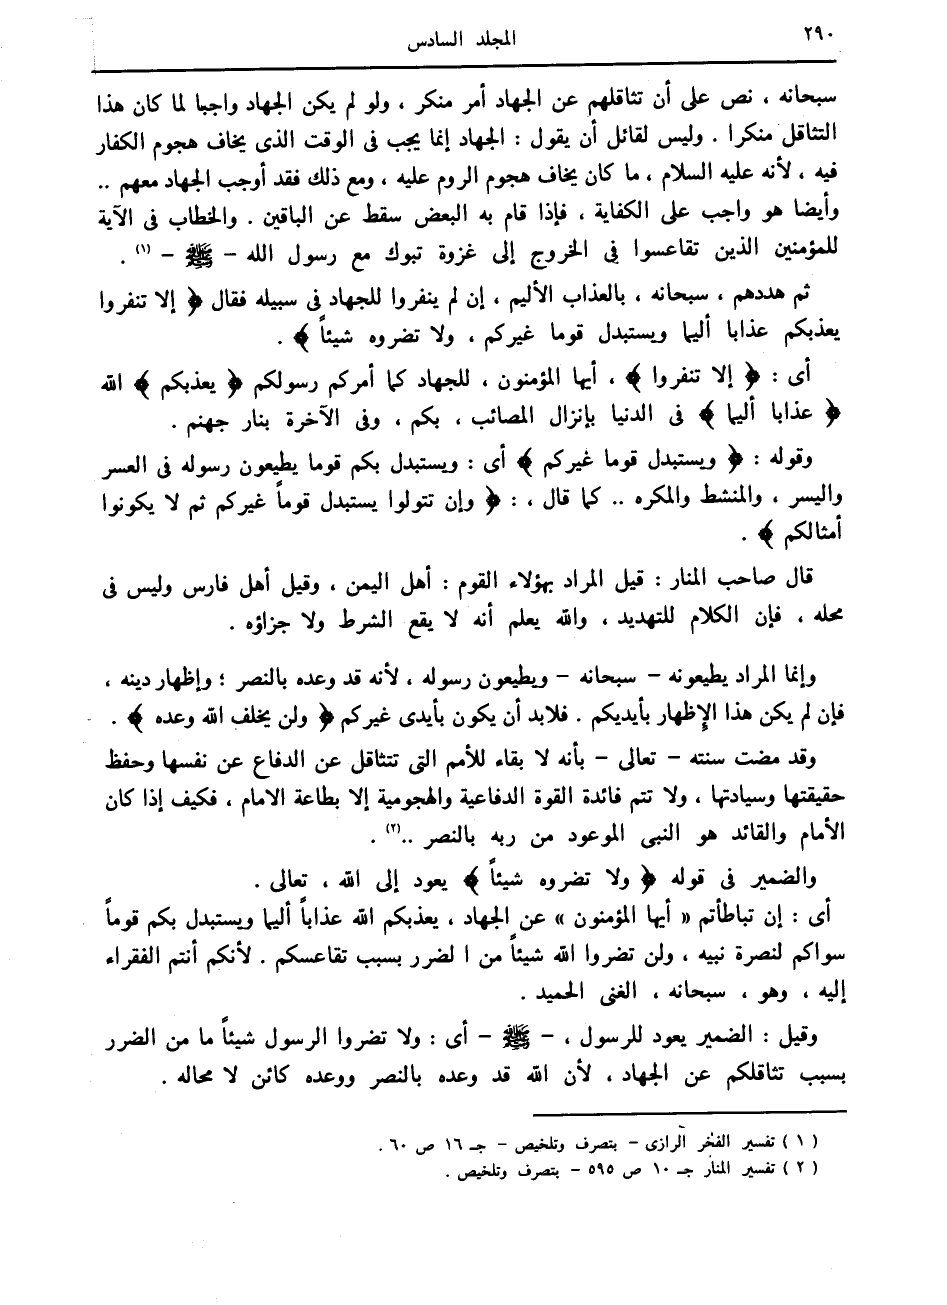 ٢٩٠
المجلد السادس
سبحانه ، نص على أن تثاقلهم عن الجهاد أمر منكر ، ولو لم يكن الجهاد واجبا لما كان هذا
التثاقل منكرا . وليس لقائل أن يقول : الجهاد إنما يجب فى الوقت الذى يخاف هجوم الكفار
فيه ، لأنه عليه السلام ، ما كان يخاف هجوم الروم عليه ، ومع ذلك فقد أوجب الجهاد معهم ..
وأيضا هو واجب على الكفاية ، فإذا قام به البعض سقط عن الباقين . والخطاب فى الآية
للمؤمنين الذين تقاعسوا فى الخروج إلى غزوة تبوك مع رسول الله – ﷺ – (١) .
ثم هددهم ، سبحانه ، بالعذاب الأليم ، إن لم ينفروا للجهاد فى سبيله فقال ﴿ إلا تنفروا
يعذبكم عذابا أليما ويستبدل قوما غيركم ، ولا تضروه شيئاً ﴾ .
أى : ﴿ إلا تنفروا ﴾ ، أيها المؤمنون ، للجهاد كما أمركم رسولكم ﴿ يعذبكم ﴾ الله
﴿ عذابا أليما ﴾ فى الدنيا بإنزال المصائب ، بكم ، وفى الآخرة بنار جهنم .
وقوله : ﴿ ويستبدل قوما غيركم ﴾ أى : ويستبدل بكم قوما يطيعون رسوله فى العسر
واليسر ، والمنشط والمكره .. كما قال ، : ﴿ وإن تتولوا يستبدل قوماً غيركم ثم لا يكونوا
أمثالكم ﴾ .
قال صاحب المنار : قيل المراد بهؤلاء القوم : أهل اليمن ، وقيل أهل فارس وليس فى
محله ، فإن الكلام للتهديد ، والله يعلم أنه لا يقع الشرط ولا جزاؤه .
وإنما المراد يطيعونه – سبحانه – ويطيعون رسوله ، لأنه قد وعده بالنصر ؛ وإظهار دينه ،
فإن لم يكن هذا الإِظهار بأيديكم . فلابد أن يكون بأيدى غيركم ﴿ ولن يخلف الله وعده ﴾ .
وقد مضت سنته – تعالى – بأنه لا بقاء للأمم التى تتثاقل عن الدفاع عن نفسها وحفظ
حقيقتها وسيادتها ، ولا تتم فائدة القوة الدفاعية والهجومية إلا بطاعة الامام ، فكيف إذا كان
الأمام والقائد هو النبى الموعود من ربه بالنصر ..(٢) .
والضمير فى قوله ﴿ ولا تضروه شيئاً ﴾ يعود إلى الله ، تعالى .
أى : إن تباطأتم « أيها المؤمنون » عن الجهاد ، يعذبكم الله عذاباً أليما ويستبدل بكم قوماً
سواكم لنصرة نبيه ، ولن تضروا الله شيئاً من ا لضرر بسبب تقاعسكم . لأنكم أنتم الفقراء
إليه ، وهو ، سبحانه ، الغنى الحميد .
وقيل : الضمير يعود للرسول ، – ﷺ – أى : ولا تضروا الرسول شيئاً ما من الضرر
بسبب تثاقلكم عن الجهاد ، لأن الله قد وعده بالنصر ووعده كائن لا محاله .
( ١ ) تفسير الفخر الرازى – بتصرف وتلخيص – جـ ١٦ ص ٦٠ .
( ٢ ) تفسير المنار جـ ١٠ ص ٥٩٥ – بتصرف وتلخيص .